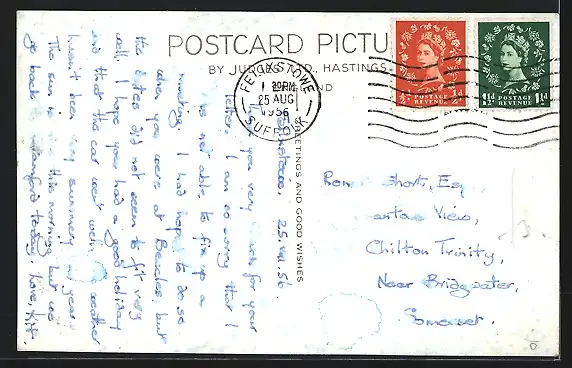 POSTCARD PICTU
BY JUDGES LTD., HASTINGS,
ND
GREETINGS AND GOOD WISHES
FELIXSTOWE
1 PM
25 AUG
1956
SUFFOLK
½d POSTAGE REVENUE ½d
1½d POSTAGE REVENUE 1½d
Felixstowe. 25.VIII.56.
Thank you very much for your
letter. I am so sorry that I
was not able to fix up a
meeting. I had hoped to do so
when you were at Beccles, but
the dates did not seem to fit very
well. I hope you had a good holiday
and that the car went well. The weather
hasn't been very summery this year.
The sun is out this morning but we
go back to Stamford today. Love, Kit.
Short, Esq.,
View,
Chilton Trinity,
Near Bridgwater,
Somerset.